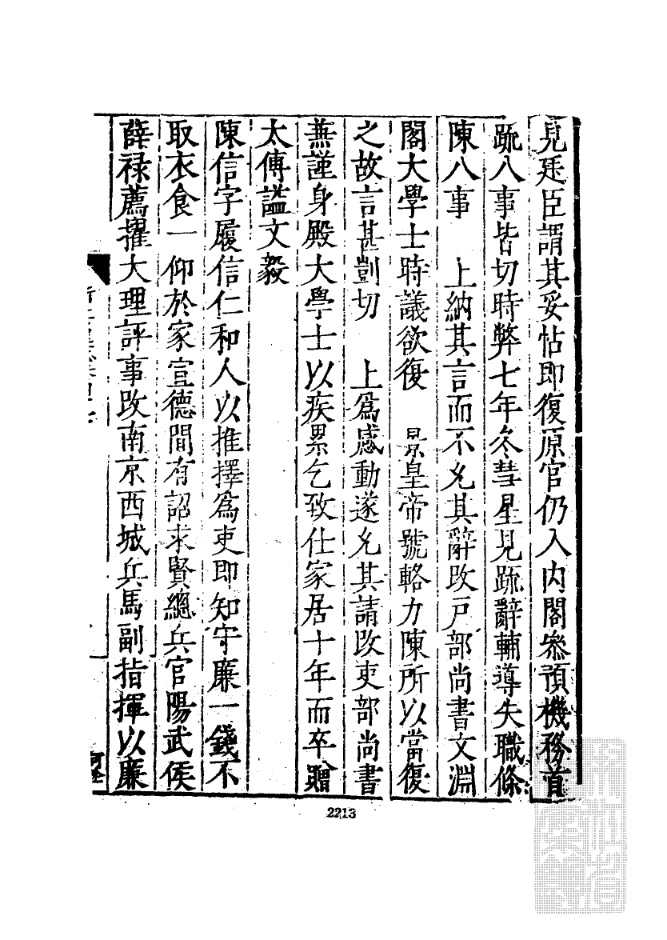 見廷臣謂其妥帖即復原官仍入内閣叅預機務首
䟽八事皆切時弊七年冬彗星見䟽辭輔導失職條
陳八事　上納其言而不允其辭改戸部尚書文淵
閣大學士時議欲復　景皇帝號輅力陳所以當復
之故言甚剴切　上爲感動遂允其請改吏部尚書
兼謹身殿大學士以疾累乞致仕家居十年而卒贈
太傅謚文毅
陳信字履信仁和人以推擇爲吏即知守廉一錢不
取衣食一仰於家宣德間有詔求賢總兵官陽武侯
薛禄薦擢大理評事改南京西城兵馬副指揮以廉
2213